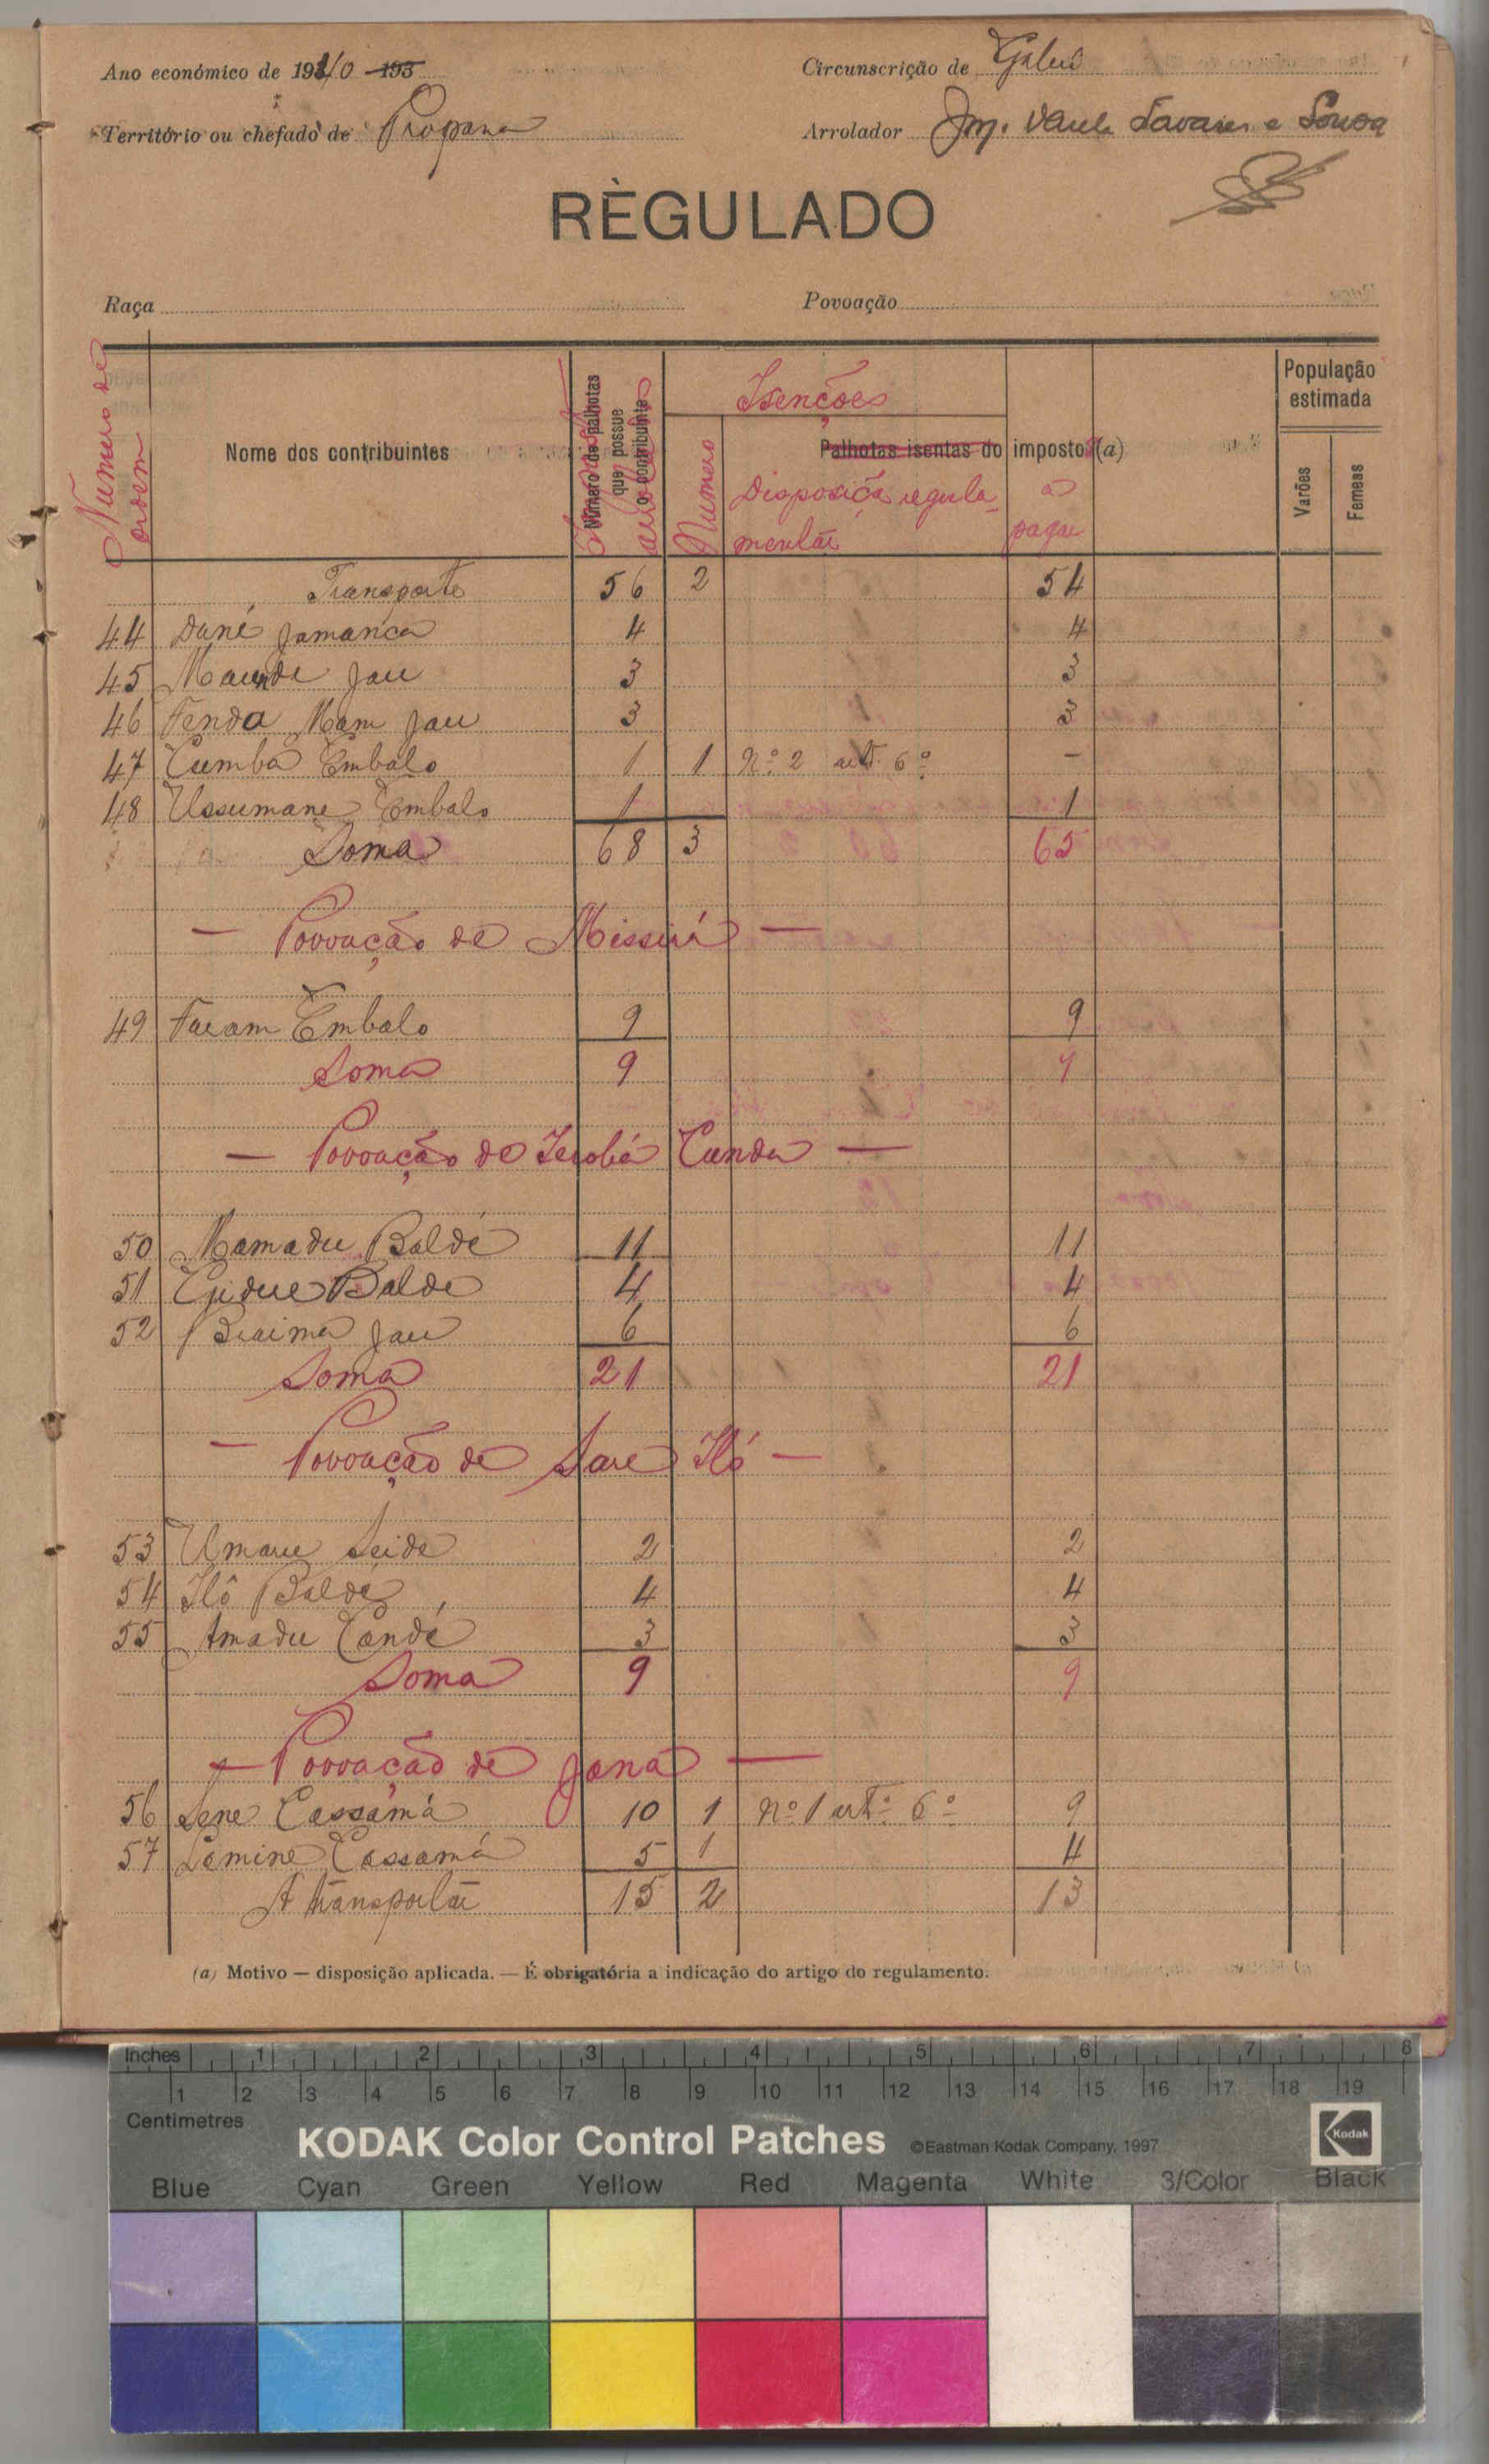 Ano económico de 1940 193
Circunscrição de
Território ou chefado de Propana
Arrolador Jm. Paula Tavares e Sousa
RÉGULADO
Raça
Povoação
Numero de ordem
Nome dos contribuintes
Número de palhotas que possue o contribuinte
Isenções
Numero
Palhotas isentas do imposto (a)
Disposição regulamentar
a pagar
População estimada
Varões
Femeas
Transporte 56 2 54
44 Dané Jamanca 4 4
45 Maunde Jau 3 3
46 Tenda Mam Jau 3 3
47 Cumba Embalo 1 1 nº 2 art. 6º -
48 Ussumane Embalo 1 1
Soma 68 3 65
— Povoação de Missirá —
49 Faram Embalo 9 9
Soma 9 9
— Povoação de Cunda —
50 Mamadu Baldé 11 11
51 Balde 4 4
52 Braima Jau 6 6
Soma 21 21
— Povoação de Sare Iló —
53 Umaru Seide 2 2
54 Iló Baldé 4 4
55 Amadu Candé 3 3
Soma 9 9
— Povoação de Jana —
56 Sene Cassamá 10 1 nº 1 artº 6º 9
57 Lamine Cassamá 5 1 4
A transportar 15 2 13
(a) Motivo — disposição aplicada. — É obrigatória a indicação do artigo do regulamento.
Inches 1 2 3 4 5 6 7 8
1 2 3 4 5 6 7 8 9 10 11 12 13 14 15 16 17 18 19
Centimetres
KODAK Color Control Patches ©Eastman Kodak Company, 1997 Kodak
Blue Cyan Green Yellow Red Magenta White 3/Color Black